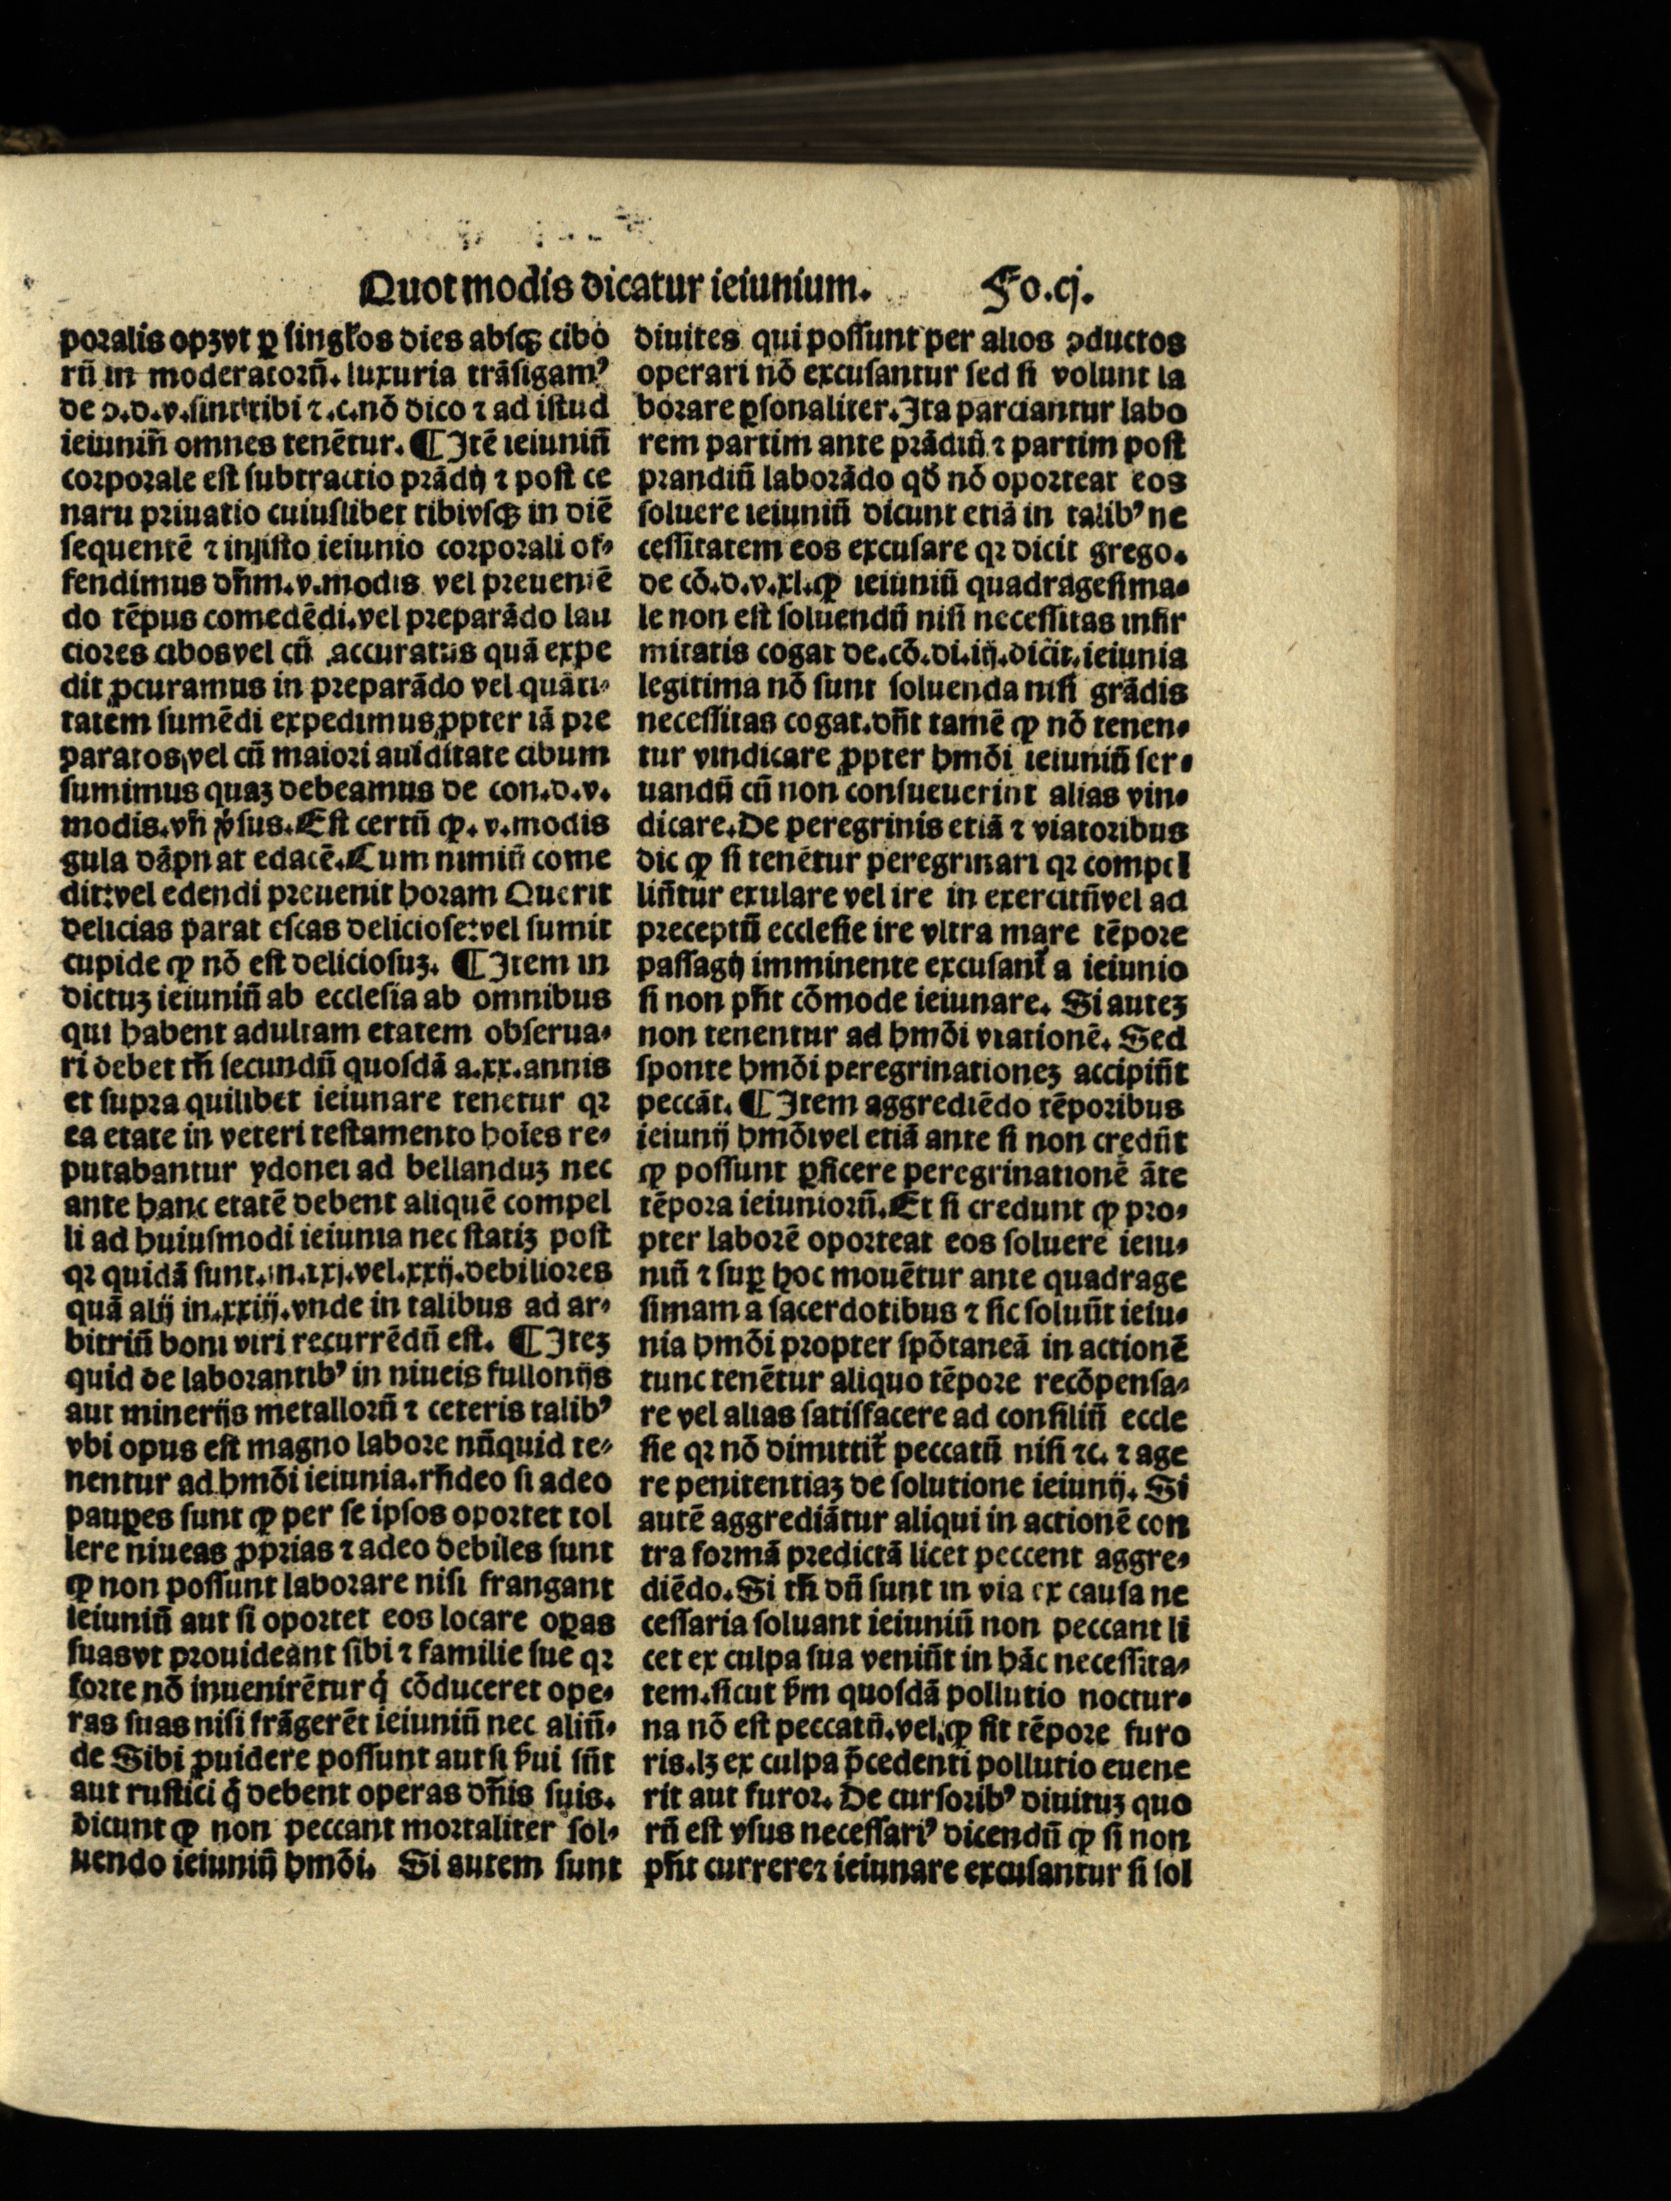 Quot modis dicatur ieiunium. Fo.cj.
poralis opꝫ vt ꝑ singl'os dies absqꝫ cibo
rū in moderatorū. luxuria trāsigamꝰ
de ↄ.d.v. sint tibi ⁊.c. nō dico ⁊ ad istud
ieiuniū omnes tenētur. ¶ Itē ieiuniū
corporale est subtractio prādij ⁊ post ce
naru priuatio cuiuslibet cibi vsqꝫ in diē
sequentē ⁊ in isto ieiunio corporali of⸗
fendimus dn̄m. v. modis vel preueniē
do tēpus comedēdi. vel preparādo lau
ciores cibos vel cū accuratiis quā expe
dit ꝓcuramus in preparādo vel quāti⸗
tatem sumēdi expedimus ꝓpter iā pre
paratos, vel cū maiori auiditate cibum
sumimus quaꝫ debeamus de con.d.v.
modis. vn̄ v̓sus. Est certū ꝙ. v. modis
gula dāpnat edacē. Cum nimiū come
dit: vel edendi preuenit horam Querit
delicias parat escas deliciose: vel sumit
cupide ꝙ nō est deliciosuꝫ. ¶ Item in
dictuꝫ ieiuniū ab ecclesia ab omnibus
qui habent adultam etatem obserua⸗
ri debet tn̄ secundū quosdā a.xx. annis
et supra quilibet ieiunare tenetur qꝛ
ea etate in veteri testamento hoīes re⸗
putabantur ydonei ad bellanduꝫ nec
ante hanc etatē debent aliquē compel
li ad huiusmodi ieiunia nec statiꝫ post
qꝛ quidā sunt. in. xxj. vel. xxij. debiliores
quā alij in. xxiij. vnde in talibus ad ar⸗
bitriū boni viri recurrēdū est. ¶ Iteꝫ
quid de laborantibꝰ in niueis fullonijs
aut minerijs metallorū ⁊ ceteris talibꝰ
vbi opus est magno labore nūquid te⸗
nentur ad hmōi ieiunia. rn̄deo si adeo
pauꝑes sunt ꝙ per se ipsos oportet tol
lere niueas ꝓprias ⁊ adeo debiles sunt
ꝙ non possunt laborare nisi frangant
ieiuniū aut si oportet eos locare oꝑas
suas vt prouideant sibi ⁊ familie sue qꝛ
forte nō inuenirētur q̓ cōduceret ope⸗
ras suas nisi frāgerēt ieiuniū nec aliū⸗
de Sibi ꝓuidere possunt aut si s̓ui sūt
aut rustici q̄ debent operas dn̄is suis.
dicunt ꝙ non peccant mortaliter sol⸗
uendo ieiuniū hmōi. Si autem sunt
diuites qui possunt per alios ↄductos
operari nō excusantur sed si volunt la
borare ꝑsonaliter. Ita parciantur labo
rem partim ante prādiū ⁊ partim post
prandiū laborādo qd̓ nō oporteat eos
soluere ieiuniū dicunt etiā in talibꝰ ne
cessitatem eos excusare qꝛ dicit grego.
de cō.d.v.xl. ꝙ ieiuniū quadragesima⸗
le non est soluendū nisi necessitas infir
mitatis cogat de.cō.di.iij. dicit. ieiunia
legitima nō sunt soluenda nisi grādis
necessitas cogat. dn̄t tamē ꝙ nō tenen⸗
tur vindicare ꝓpter hmōi ieiuniū ser⸗
uandū cū non consueuerint alias vin⸗
dicare. De peregrinis etiā ⁊ viatoribus
dic ꝙ si tenētur peregrinari qꝛ compel
lūtur exulare vel ire in exercitū vel ad
preceptū ecclesie ire vltra mare tēpore
passagij imminente excusant̄ a ieiunio
si non pn̄t cōmode ieiunare. Si auteꝫ
non tenentur ad hmōi viationē. Sed
sponte hmōi peregrinationeꝫ accipiūt
peccāt. ¶ Item aggrediēdo tēporibus
ieiunij hmōi vel etiā ante si non credūt
ꝙ possunt ꝑficere peregrinationē āte
tēpora ieiuniorū. Et si credunt ꝙ pro⸗
pter laborē oporteat eos soluere ieiu⸗
niū ⁊ suꝑ hoc mouētur ante quadrage
simam a sacerdotibus ⁊ sic soluūt ieiu⸗
nia hmōi propter spōtaneā in actionē
tunc tenētur aliquo tēpore recōpensa⸗
re vel alias satisfacere ad consiliū eccle
sie qꝛ nō dimittit̄ peccatū nisi ⁊c. ⁊ age
re penitentiaꝫ de solutione ieiunij. Si
autē aggrediātur aliqui in actionē con
tra formā predictā licet peccent aggre⸗
diēdo. Si tn̄ dū sunt in via ex causa ne
cessaria soluant ieiuniū non peccant li
cet ex culpa sua veniūt in hāc necessita⸗
tem. sicut s̓m quosdā pollutio noctur⸗
na nō est peccatū. vel, ꝙ fit tēpore furo
ris. lꝫ ex culpa p̄cedenti pollutio euene
rit aut furor. De cursoribꝰ diuituꝫ quo
rū est vsus necessariꝰ dicendū ꝙ si non
pn̄t currere ⁊ ieiunare excusantur si sol